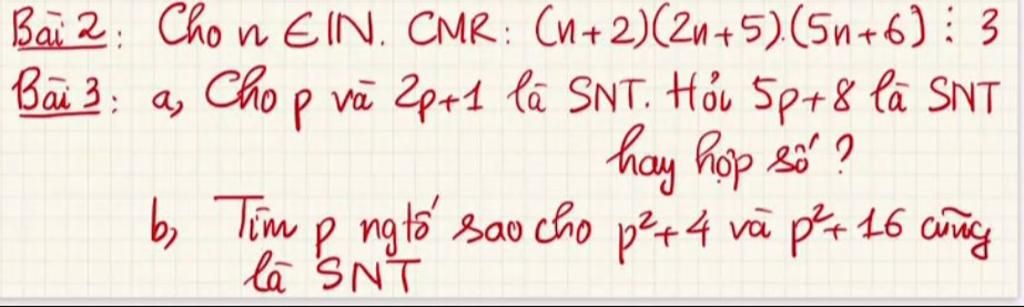 Bài 2: Cho n ∈ IN. CMR: (n+2)(2n+5).(5n+6) ⋮ 3
Bài 3: a, Cho p và 2p+1 là SNT. Hỏi 5p+8 là SNT
hay hợp số?
b, Tìm p ngtố sao cho p²+4 và p²+16 cũng
là SNT